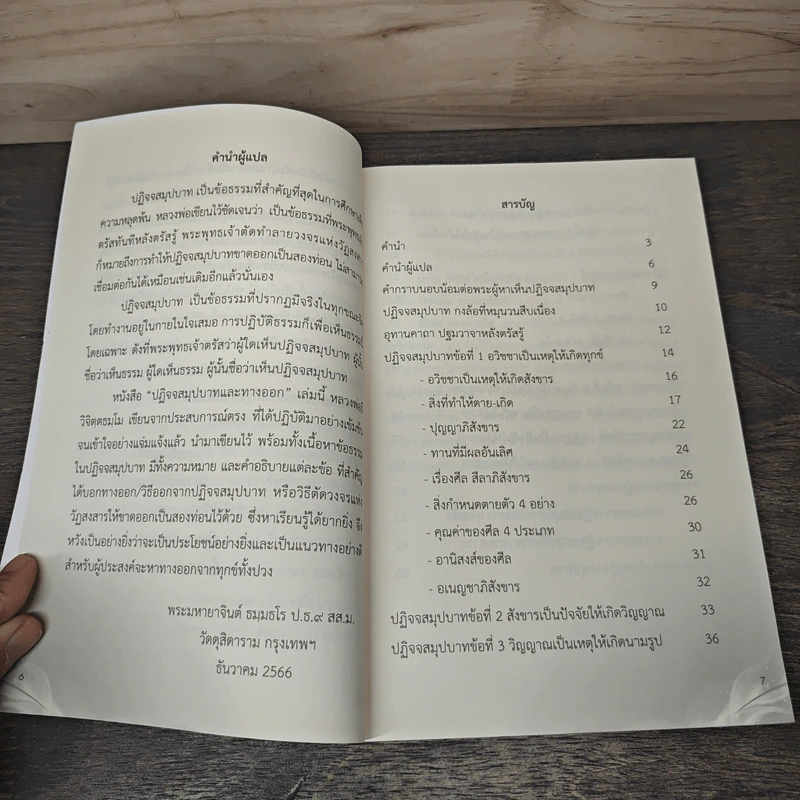 คำนำผู้แปล
ปฏิจจสมุปบาท เป็นข้อธรรมที่สำคัญที่สุดในการศึกษา
ความหลุดพ้น หลวงพ่อเขียนไว้ชัดเจนว่า เป็นข้อธรรมที่พระพุทธ
ตรัสทันทีหลังตรัสรู้ พระพุทธเจ้าตัดทำลายวงจรแห่งวัฏสง
ก็หมายถึงการทำให้ปฏิจจสมุปบาทขาดออกเป็นสองท่อน ไม่สามา
เชื่อมต่อกันได้เหมือนเช่นเดิมอีกแล้วนั่นเอง
ปฏิจจสมุปบาท เป็นข้อธรรมที่ปรากฏมีจริงในทุกขณะ
โดยทำงานอยู่ภายในใจเสมอ การปฏิบัติธรรมก็เพื่อเห็นธรรม
โดยเฉพาะ ดังที่พระพุทธเจ้าตรัสว่าผู้ใดเห็นปฏิจจสมุปบาท ผู้นั้น
ชื่อว่าเห็นธรรม ผู้ใดเห็นธรรม ผู้นั้นชื่อว่าเห็นปฏิจจสมุปบาท
หนังสือ “ปฏิจจสมุปบาทและทางออก” เล่มนี้ หลวงพ่อ
วิจิตฺตธมฺโม เขียนจากประสบการณ์ตรง ที่ได้ปฏิบัติมาอย่างเข้มข้น
จนเข้าใจอย่างแจ่มแจ้งแล้ว นำมาเขียนไว้ พร้อมทั้งเนื้อหาข้อธรรม
ในปฏิจจสมุปบาท มีทั้งความหมาย และคำอธิบายแต่ละข้อ ที่สำคัญ
ได้บอกทางออก/วิธีออกจากปฏิจจสมุปบาท หรือวิธีตัดวงจรแห่ง
วัฏสงสารให้ขาดออกเป็นสองท่อนไว้ด้วย ซึ่งหาเรียนรู้ได้ยากยิ่ง จึง
หวังเป็นอย่างยิ่งว่าจะเป็นประโยชน์อย่างยิ่งและเป็นแนวทางอย่างดี
สำหรับผู้ประสงค์จะหาทางออกจากทุกข์ทั้งปวง
พระมหายาจินต์ ธมฺมธโร ป.ธ.๙ สส.ม.
วัดดุสิดาราม กรุงเทพฯ
ธันวาคม 2566
6
สารบัญ
คำนำ 3
คำนำผู้แปล 6
คำกราบนอบน้อมต่อพระผู้หาเห็นปฏิจจสมุปบาท 9
ปฏิจจสมุปบาท กงล้อที่หมุนวนสืบเนื่อง 10
อุทานคาถา ปฐมวาจาหลังตรัสรู้ 12
ปฏิจจสมุปบาทข้อที่ 1 อวิชชาเป็นเหตุให้เกิดทุกข์ 14
- อวิชชาเป็นเหตุให้เกิดสังขาร 16
- สิ่งที่ทำให้ตาย-เกิด 17
- ปุญญาภิสังขาร 22
- ทานที่มีผลอันเลิศ 24
- เรื่องศีล สีลาภิสังขาร 26
- สิ่งกำหนดตายตัว 4 อย่าง 26
- คุณค่าของศีล 4 ประเภท 30
- อานิสงส์ของศีล 31
- อเนญชาภิสังขาร 32
ปฏิจจสมุปบาทข้อที่ 2 สังขารเป็นปัจจัยให้เกิดวิญญาณ 33
ปฏิจจสมุปบาทข้อที่ 3 วิญญาณเป็นเหตุให้เกิดนามรูป 36
7